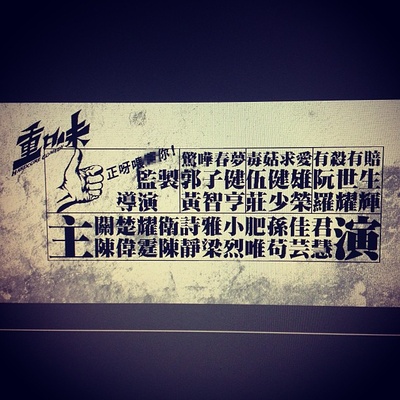 重口味
HARDCORE COMEDY
正呀喂 你！
驚嘩春夢 毒菇求愛 有殺有賠
監製 郭子健 伍健雄 阮世生
導演 黃智亨 莊少榮 羅耀輝
主演
關楚耀 衛詩雅 小肥 孫佳君
陳偉霆 陳靜 梁烈唯 苟芸慧